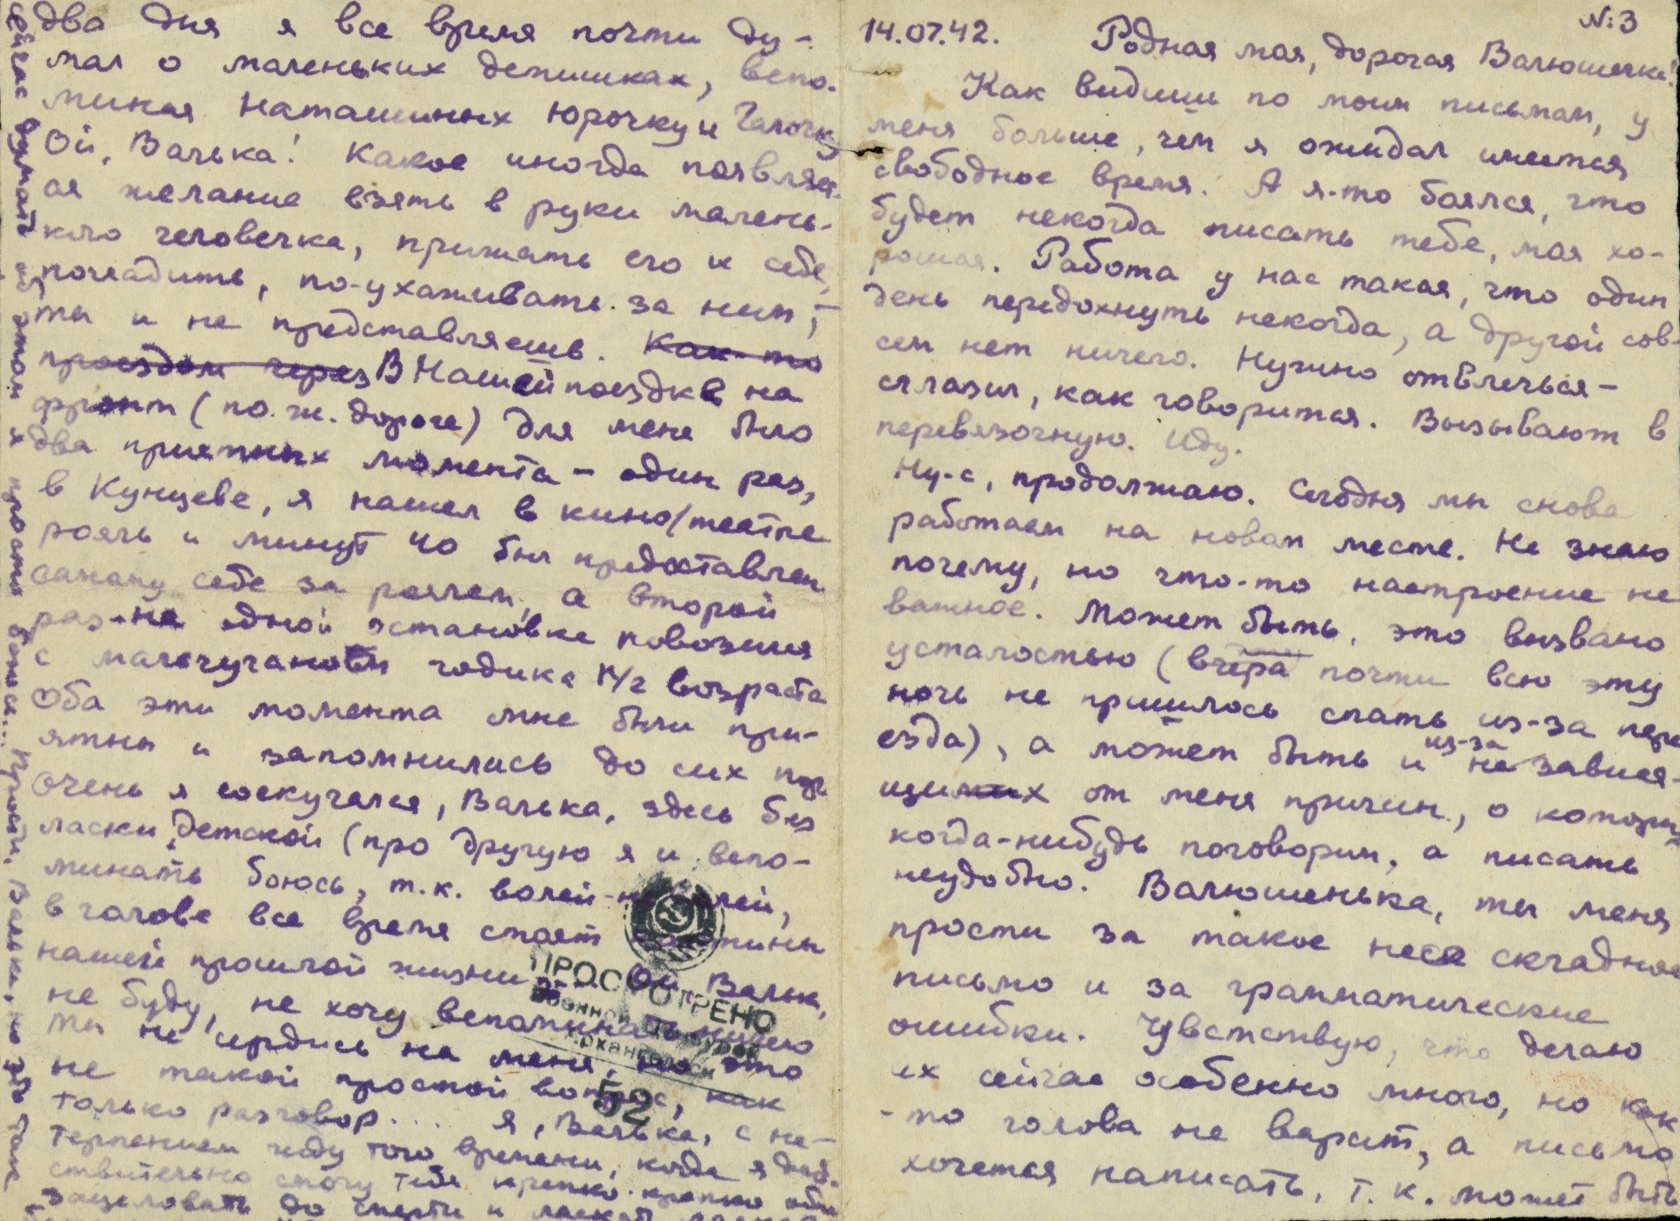 №:3
14.07.42. Родная моя, дорогая Валюшечка!
Как видишь по моим письмам, у
меня больше, чем я ожидал имеется
свободное время. А я-то боялся, что
будет некогда писать тебе, моя хо-
рошая. Работа у нас такая, что один
день передохнуть некогда, а другой сов-
сем нет ничего. Нужно отвлечься –
сглазил, как говорится. Вызывают в
перевязочную. Иду.
Ну-с, продолжаю. Сегодня мы снова
работаем на новом месте. Не знаю
почему, но что-то настроение не
важное. Может быть, это вызвано
усталостью (вчера почти всю эту
ночь не пришлось спать из-за пере
езда), а может быть и из-за не завися-
щих от меня причин, о которых
когда-нибудь поговорим, а писать
неудобно. Валюшенька, ты меня
прости за такое нескладное
письмо и за грамматические
ошибки. Чувствую, что делаю
их сейчас особенно много, но как
-то голова не варит, а письмо
хочется написать, т.к. может быть
два дня я все время почти ду-
мал о маленьких детишках, вспо-
миная Наташиных Юрочку и Галочку
Ой, Валька! Какое иногда появляет-
ся желание взять в руки малень-
кого человечка, прижать его к себе,
погладить, по-ухаживать за ним, –
ты и не представляешь. Как-то
проездом через В Нашей поездке на
фронт (по ж. дороге) для меня было
два приятных момента – один раз,
в Кунцеве, я нашел в кино/театре
рояль и минут 40 был предоставлен
самому себе за роялем, а второй
раз-на одной остановке повозился
с годика 1½ возраста
Оба эти момента мне были при-
ятны и запомнились до сих пор
Очень я соскучался, Валька, здесь без
ласки детской (про другую я и вспо-
минать боюсь, т.к. волей-неволей,
в голове все время стоят картины
нашей прошлой жизни). Ой, Валька,
не буду, не хочу вспоминать ничего
ты не сердись на меня, но это
не такой простой вопрос, как
только разговор.... Я, Валька, с не-
терпением жду того времени, когда я дей-
ствительно смогу тебя крепко-крепко обнять
зацеловать до смерти и
сейчас думать об этом я просто боюсь... Прости, Валька, но это так
ПРОСМОТРЕНО
Военной Цензурой
Архангельск
52